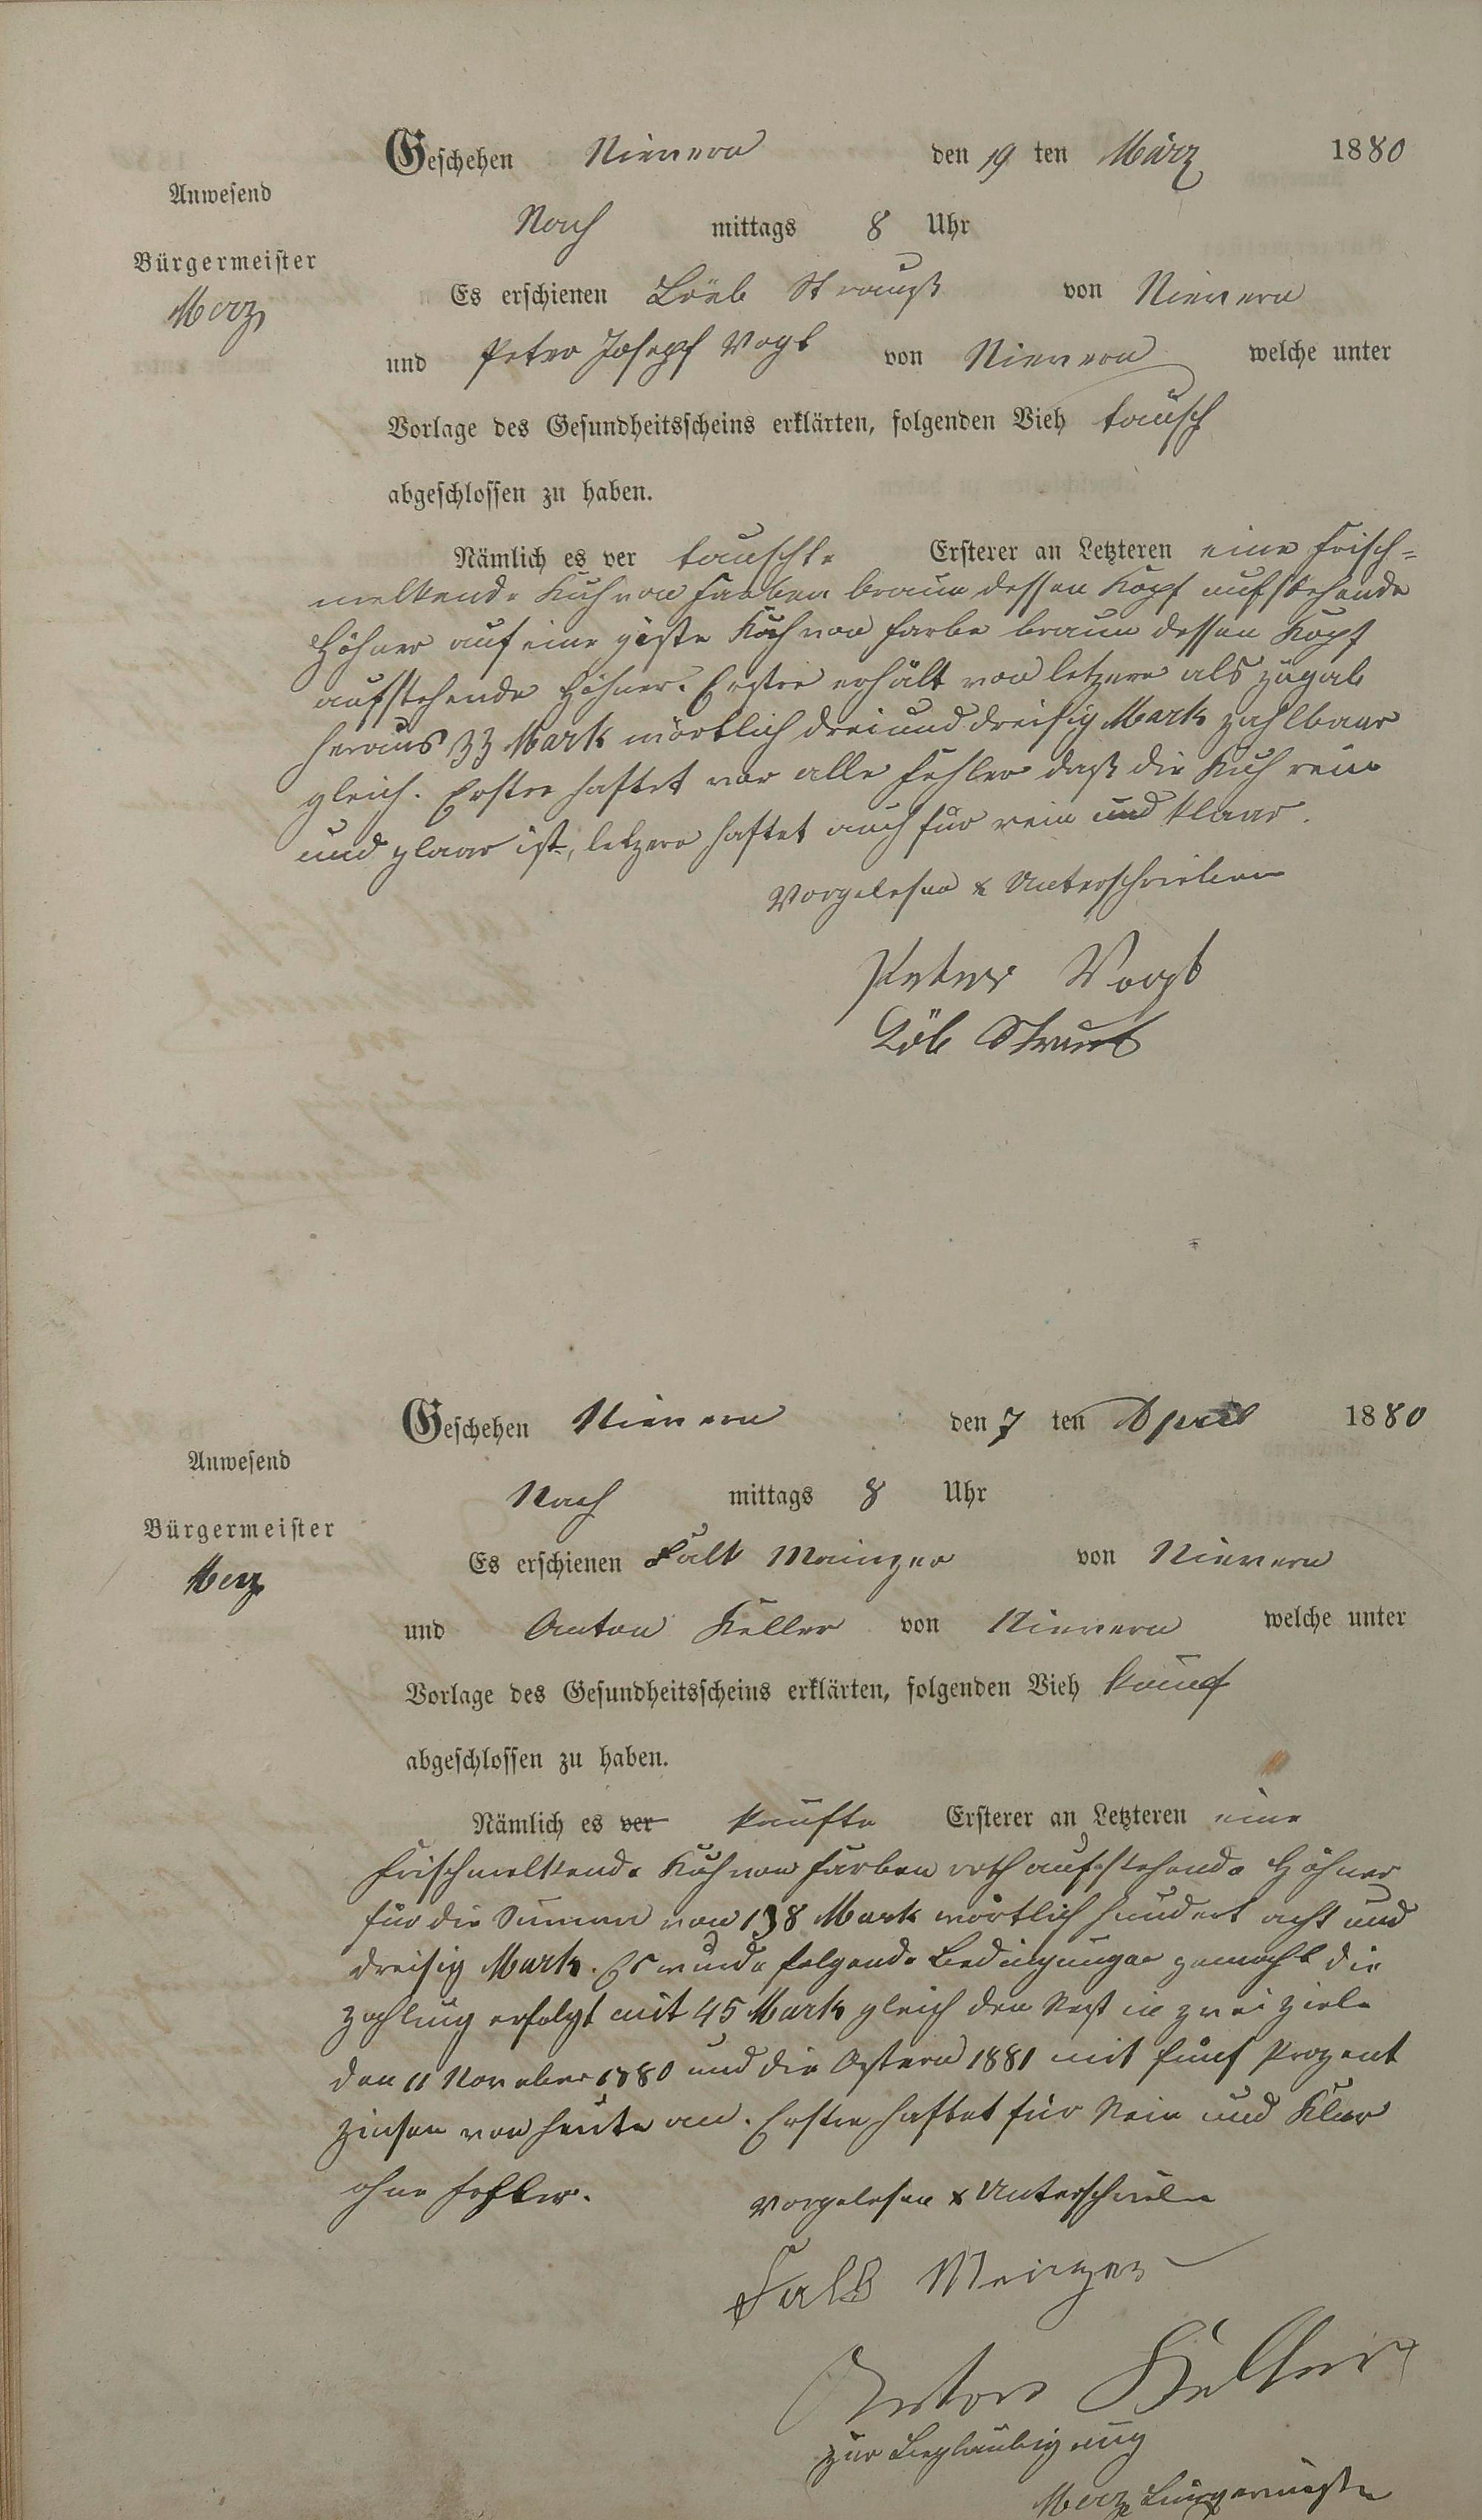 Geschehen Nievern den 19 ten März 1880
Anwesend
Nach mittags 8 Uhr
Bürgermeister
Merz
Es erschienen Löeb Straugß von Nievern
und Peter Josepf Vogt von Nievern welche unter
Vorlage des Gesundheitsscheins erklärten, folgenden Vieh tausch
abgeschlossen zu haben.
Nämlich es ver tauschte Ersterer an Letzteren eine frisch=
melkende Kuh von Farben braun dessen Kopf aufstehende
Höhner auf eine giste Kuh von farbe braun dessen Kopf
aufstehende Höhner. Erstre erhält von letzere als zugab
heraus 33 Mark wörtlich dreiunddreisig Mark zahlbaar
gleich. Erstre haftet vor alle Fehler daß die Kuh rein
und glaar ist, letzere haftet auch für rein und klaar.
Vorgelesen & Unterschrieben
Peter Vogt
Löb Straus
Geschehen Nievern den 7 ten April 1880
Anwesend
Nach mittags 8 Uhr
Bürgermeister
Merz
Es erschienen Falk Mainzer von Nievern
und Anton Keller von Nievern welche unter
Vorlage des Gesundheitsscheins erklärten, folgenden Vieh kauf
abgeschlossen zu haben.
Nämlich es ver kaufte Ersterer an Letzteren eine
frischmelkende Kuh von farben roth aufstehende Höhner
für die Summe von 138 Mark wörtlich hundert acht und
dreisig Mark. Es wurde folgende Bedingungen gemacht die
zahlung erfolgt mit 45 Mark gleich den Rest in zwei Ziele
den 11 November 1880 und die Ostern 1881 mit fünf Prozent
zinsen von heute an. Erstre haftet für Rein und Klar
ohne Fehler.
Vorgelesen & Unterschrieben
Falk Meinzer
Anton Keller
zur Beglaubigung
Merz Bürgermeister